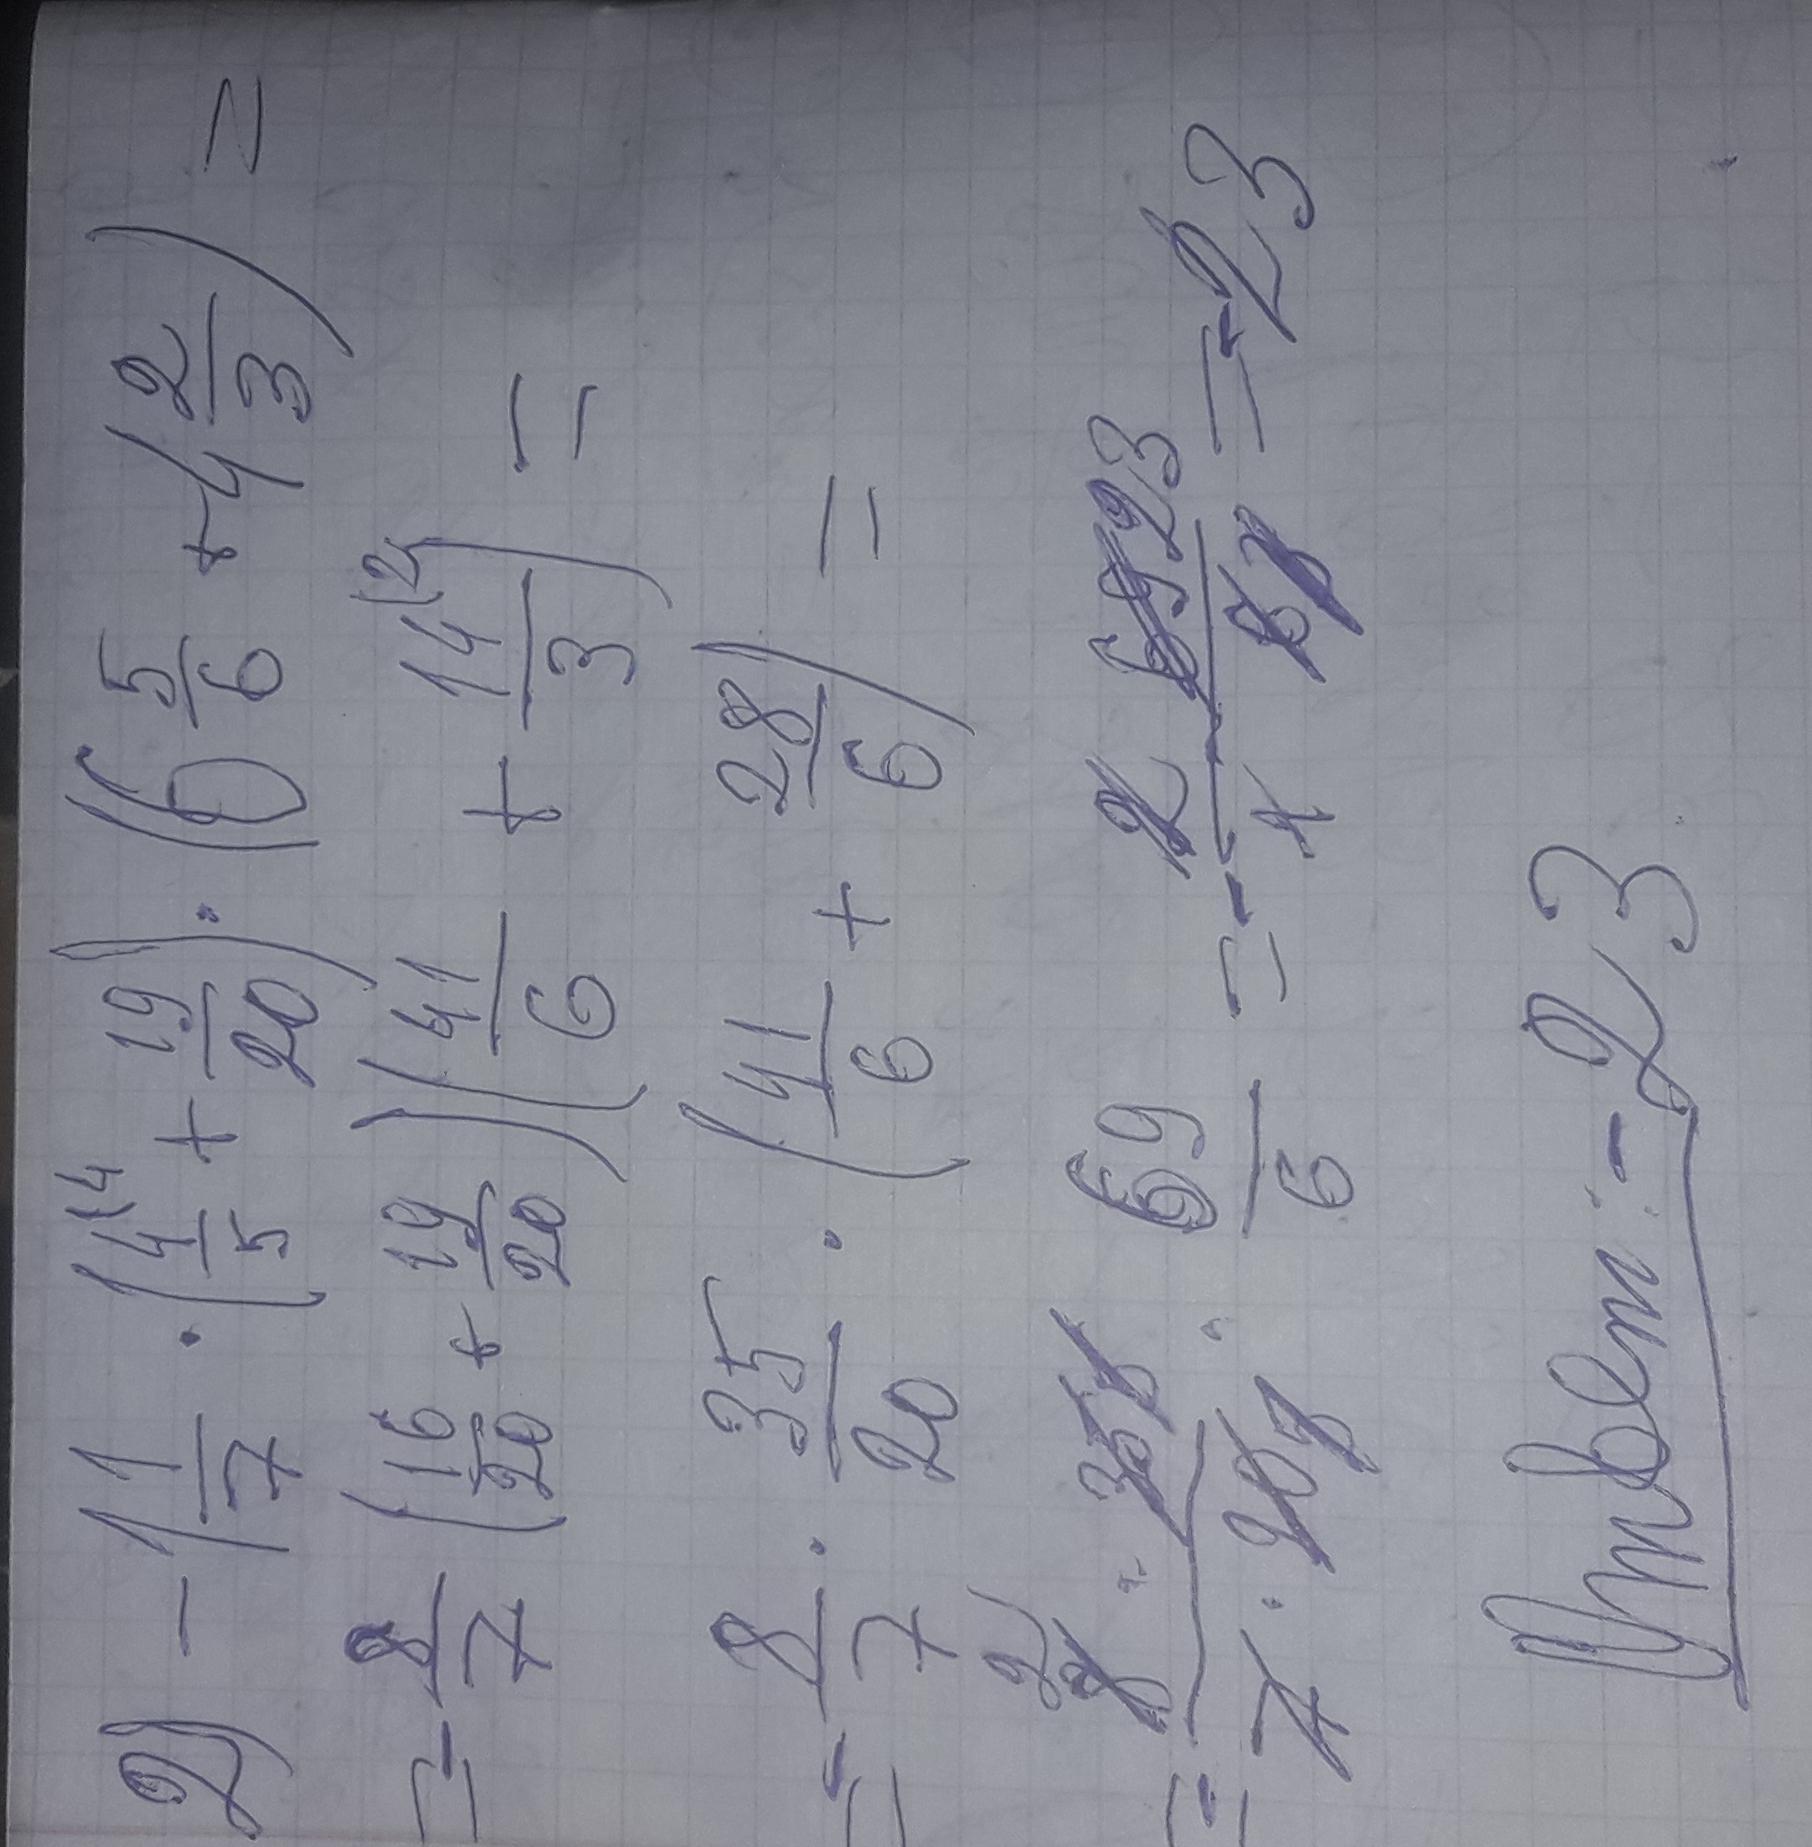 2) -1 1/7 · (4/5 (4 + 19/20) · (6 5/6 + 4 2/3) =
= - 8/7 (16/20 + 19/20)(41/6 + 14/3 (2) =
= - 8/7 · 35/20 · (41/6 + 28/6) =
= - 2) 8 · 35 / 7 · 20 · 69/6 = - 2 69 23 / 1 6 = -23
Ответ: -23